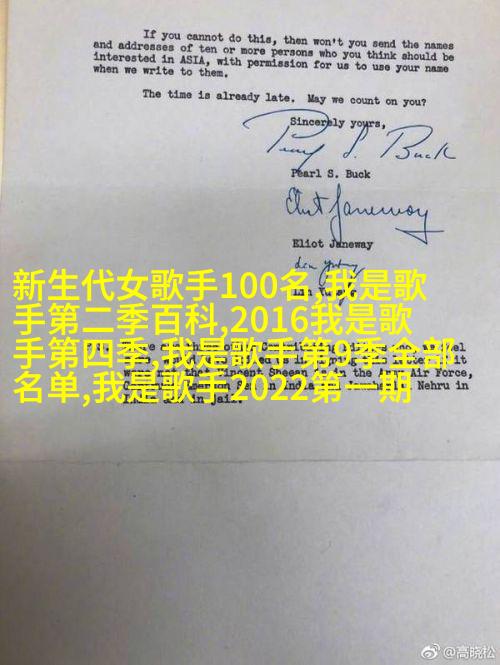 If you cannot do this, then won't you send the names
and addresses of ten or more persons who you think should be
interested in ASIA, with permission for us to use your name
when we write to them.
The time is already late. May we count on you?
Sincerely yours,
Pearl S. Buck
Pearl S. Buck
Eliot Janeway
Eliot Janeway
新生代女歌手100名,我是歌
手第二季百科,2016我是歌
手第四季,我是歌手第9季全部
名单,我是歌手2022第一期
Air Force,
Nehru in
in jail.
@高晓松